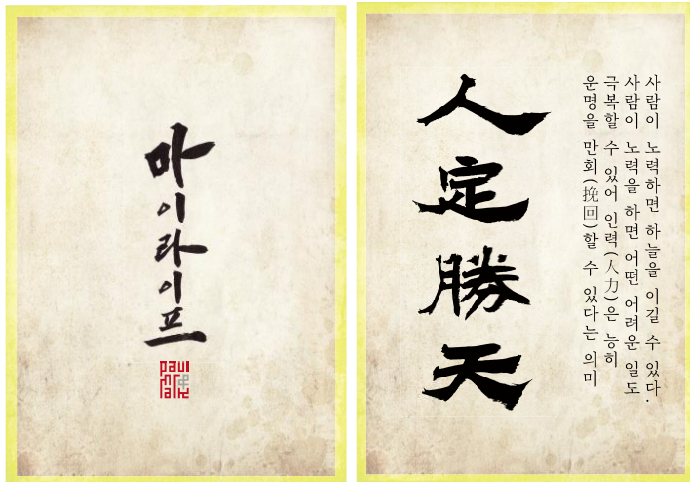 마이라이프
paul
人定勝天
사람이 노력하면 하늘을 이길 수 있다.
사람이 노력을 하면 어떤 어려운 일도
극복할 수 있어 인력(人力)은 능히
운명을 만회(挽回)할 수 있다는 의미